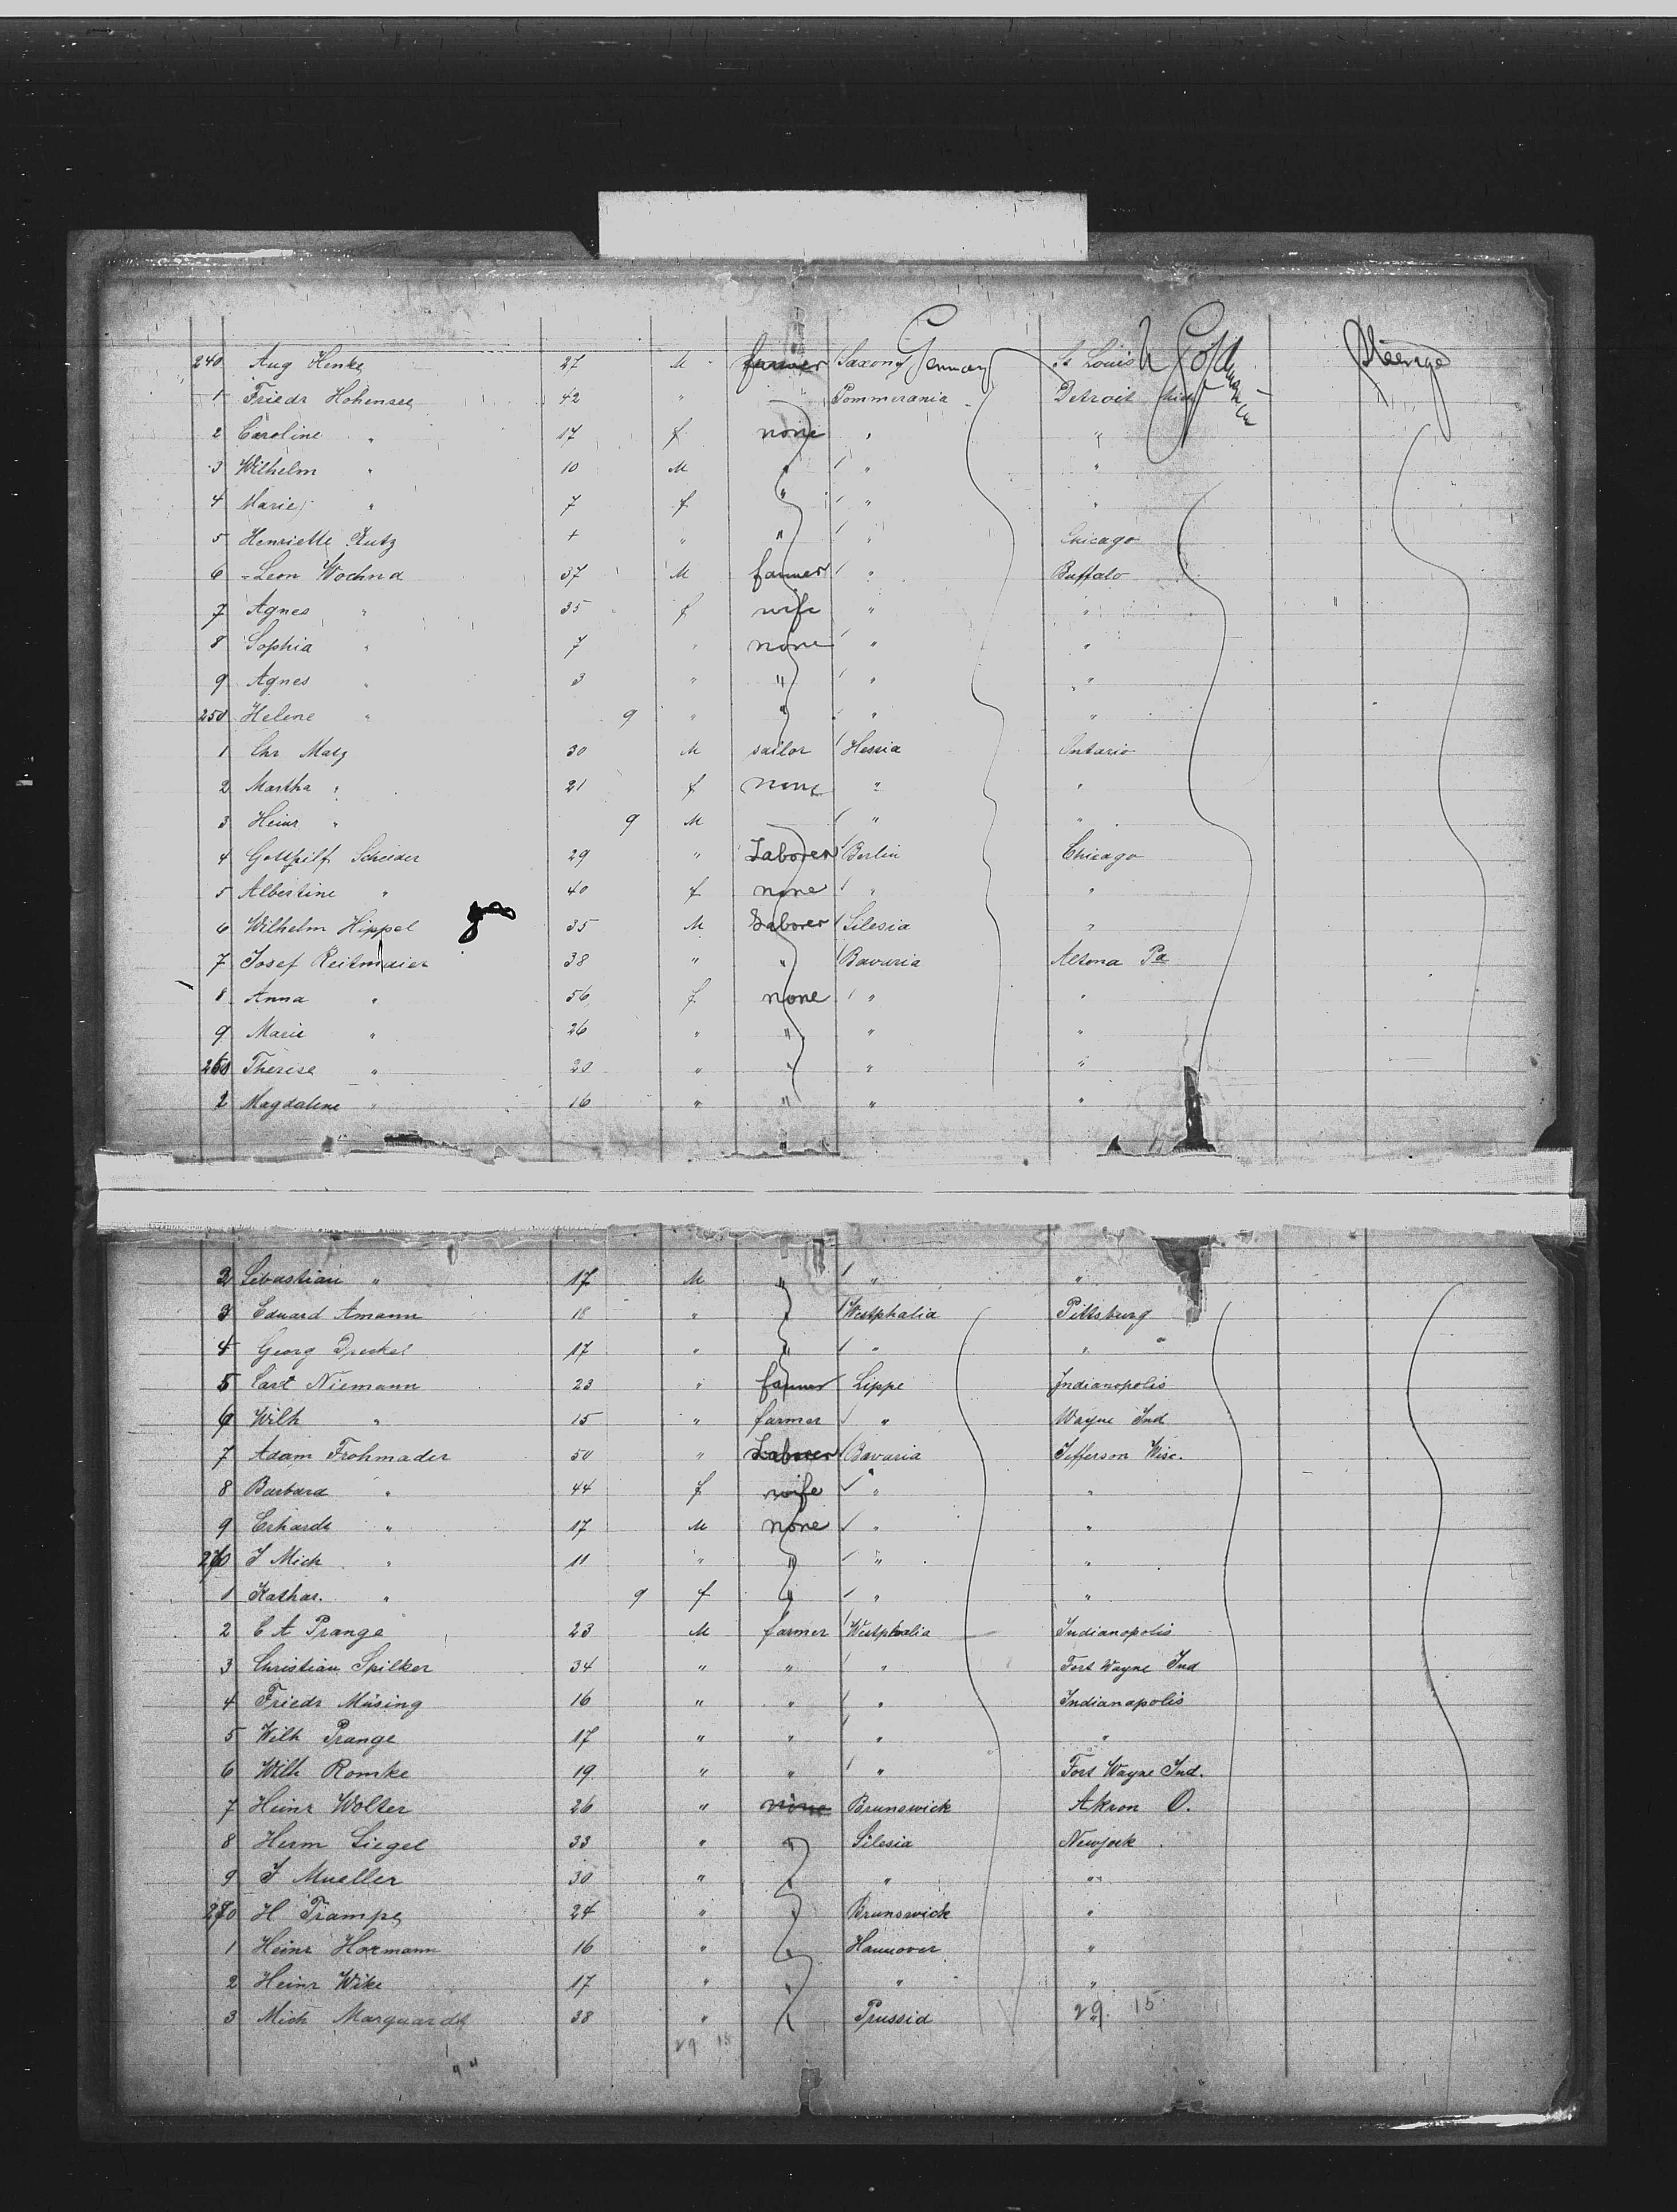 240 Aug Henke 27 M farmer Saxony Germany St Louis Steerage
1 Friedr Hohensee 42 " " Pommerania Detroit Mich
2 Caroline " 17 f none " "
3 Wilhelm " 10 M " " "
4 Marie " 7 f " " "
5 Henriette Kutz + " " " Chicago
6 Leon Wochna 37 M farmer " Buffalo
7 Agnes " 35 f wife " "
8 Sophia " 7 " none " "
9 Agnes " 3 " " " "
250 Helene " 9 " " " "
1 Chr Matz 30 M sailor Hessia Ontario
2 Martha " 21 f none " "
3 Heinr " 9 M " "
4 Gotthilf Scheider 29 " Laborer Berlin Chicago
5 Albertine " 40 f none " "
6 Wilhelm Hippel 35 M Laborer Silesia "
7 Josef Reitmaier 38 " " Bavaria Altona Pa
8 Anna " 56 f none " "
9 Marie " 26 " " " "
260 Therese " 20 " " " "
2 Magdalene " 16 " " " "
2 Sebastian " 17 M " " "
3 Eduard Amann 18 " " Westphalia Pittsburg
4 Georg 17 " " " " "
5 Carl Niemann 23 " farmer Lippe Indianopolis
6 Wilh " 15 " farmer " Wayne Ind
7 Adam Frohmader 50 " Laborer Bavaria Jefferson Wisc.
8 Barbara " 44 f wife " "
9 Erhardt " 17 M none " "
270 J Mich " 11 " " " "
1 Kathar. " 9 f " " "
2 C A Prange 23 M farmer Westphalia Indianopolis
3 Christian Spilker 34 " " " Fort Wayne Ind
4 Friedr Müsing 16 " " " Indianapolis
5 Wilh Prange 17 " " " "
6 Wilh Romke 19 " " " Fort Wayne Ind.
7 Heinr Wolter 26 " none Brunswick Akron O.
8 Herm Siegel 33 " " Silesia Newjork
9 J Mueller 30 " " " "
280 H Trampe 24 " " Brunswick "
1 Heinr Hormann 16 " " Hannover "
2 Heinr Wike 17 " " " "
3 Mich Marquardt 38 " Prussia 29. 15
29 15